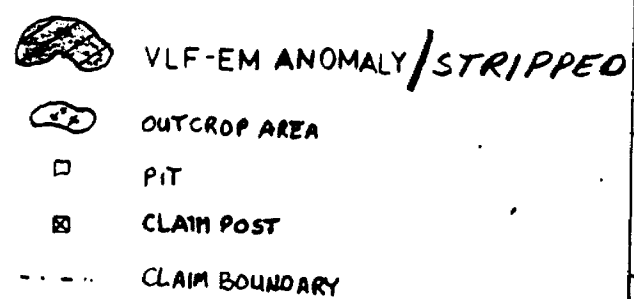 VLF-EM ANOMALY/STRIPPED
OUTCROP AREA
PIT
CLAIM POST
CLAIM BOUNDARY